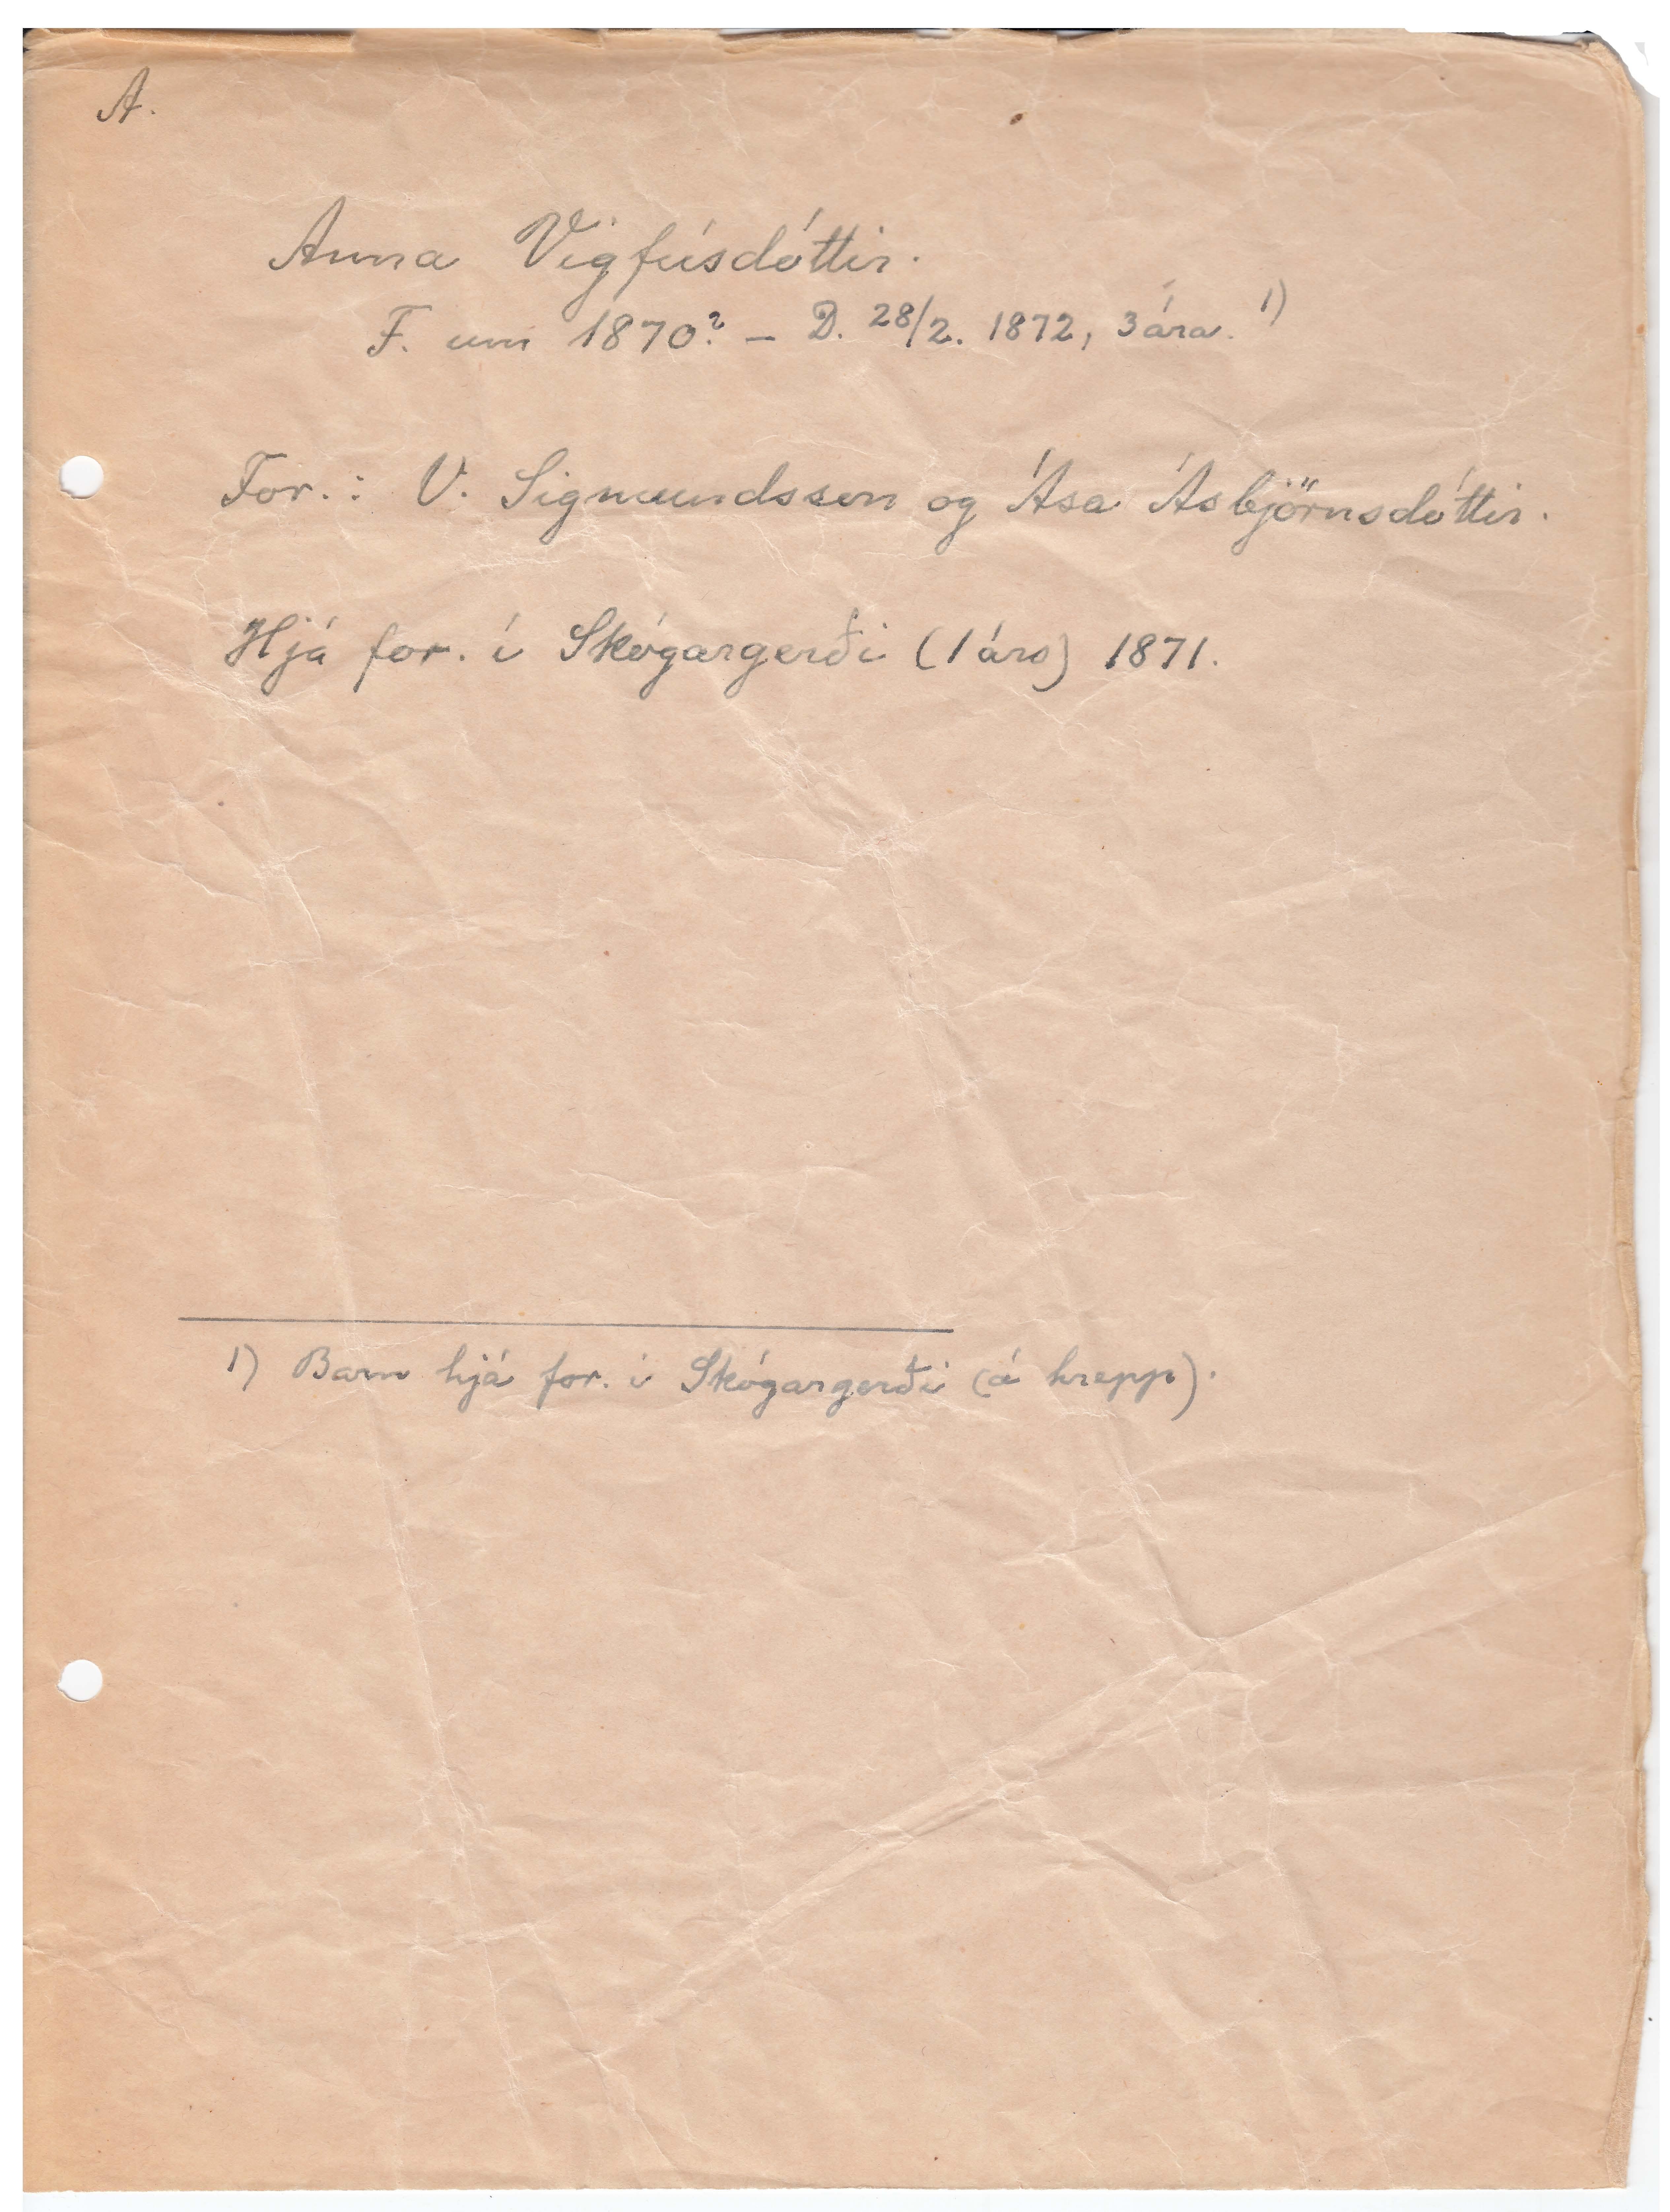 A.
Anna Vigfúsdóttir.
F. um 1870? – D. 28/2. 1872, 3 ára. 1)
For.: V. Sigmundsson og Ása Ásbjörnsdóttir.
Hjá for. í Skógargerði (1 árs) 1871.
1) Barn hjá for. í Skógargerði (á hrepp).